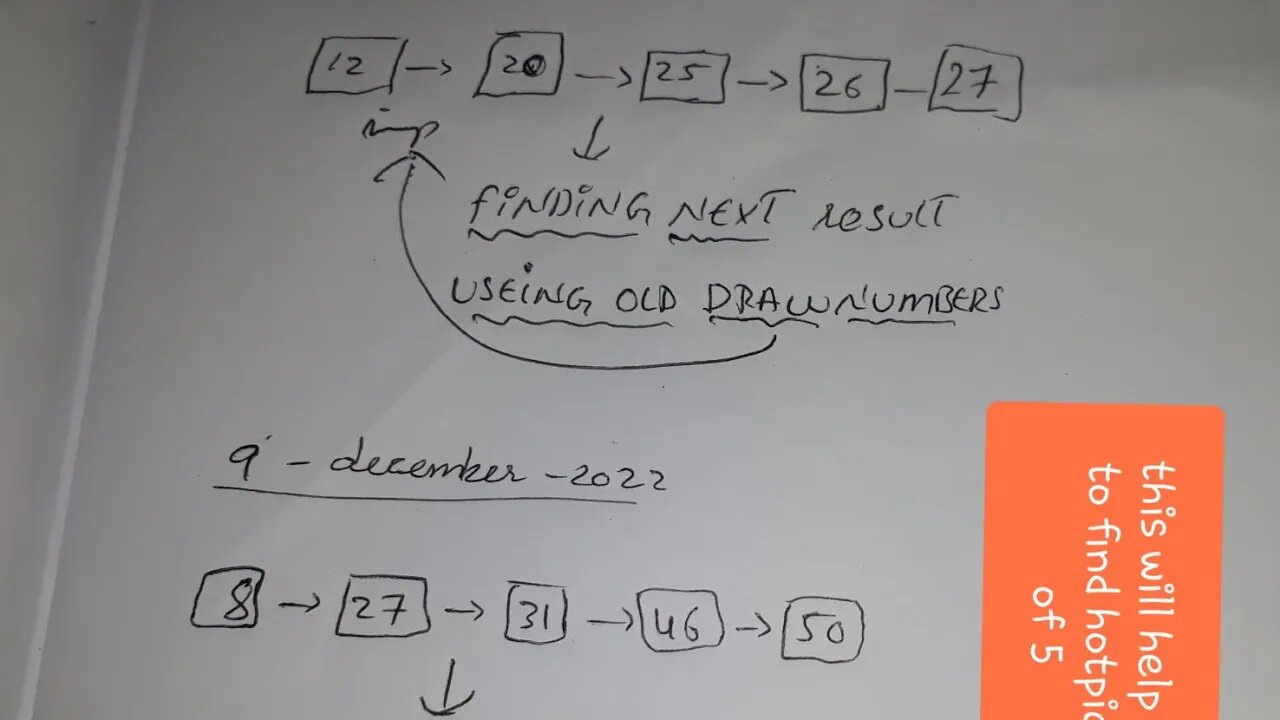 12 → 20 → 25 → 26 – 27
imp
FINDING NEXT result
USEING OLD DRAW NUMBERS
9 - december - 2022
8 → 27 → 31 → 46 → 50
this will help
to find hotpic
of 5